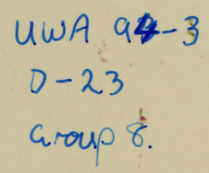 UWA 94-3
D-23
Group 8.